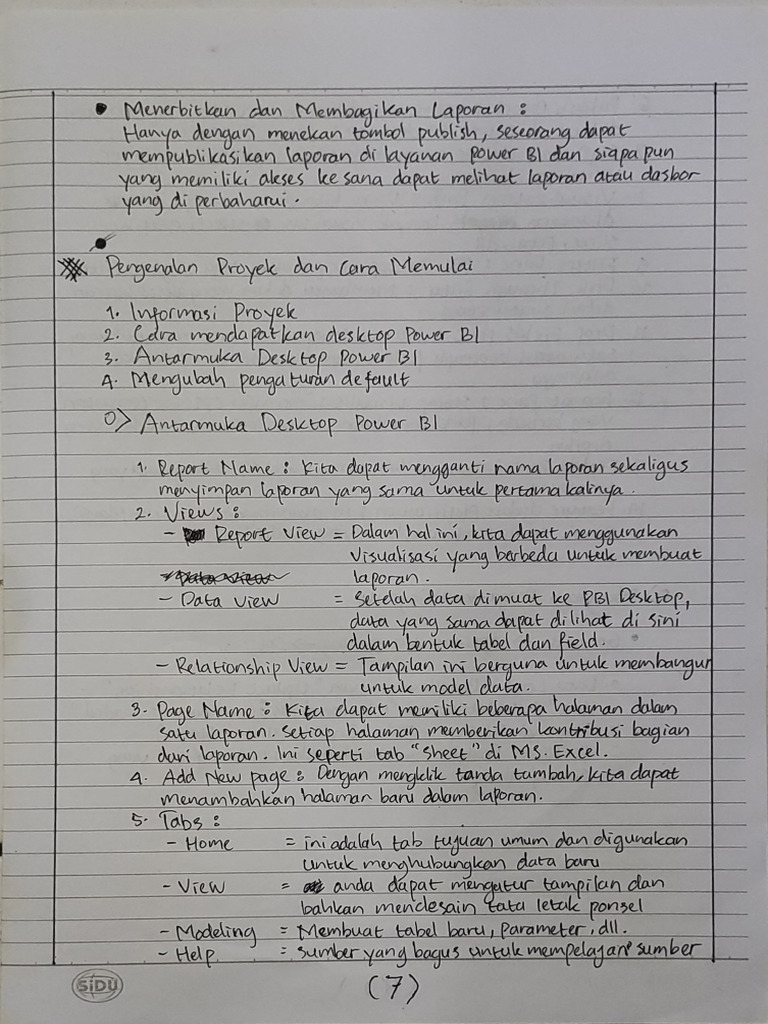 • Menerbitkan dan Membagikan Laporan :
Hanya dengan menekan tombol publish, seseorang dapat
mempublikasikan laporan di layanan Power BI dan siapa pun
yang memiliki akses ke sana dapat melihat laporan atau dasbor
yang di perbaharui.
Pengenalan Proyek dan Cara Memulai
1. Informasi Proyek
2. Cara mendapatkan desktop Power BI
3. Antarmuka Desktop Power BI
4. Mengubah pengaturan default
0> Antarmuka Desktop Power BI
1. Report Name : Kita dapat mengganti nama laporan sekaligus
menyimpan laporan yang sama untuk pertama kalinya.
2. Views :
- Report View = Dalam hal ini, kita dapat menggunakan
visualisasi yang berbeda untuk membuat
laporan.
- Data View = Setelah data dimuat ke PBI Desktop,
data yang sama dapat dilihat di sini
dalam bentuk tabel dan field.
- Relationship View = Tampilan ini berguna untuk membangun
untuk model data.
3. Page Name : Kita dapat memiliki beberapa halaman dalam
satu laporan. Setiap halaman memberikan kontribusi bagian
dari laporan. Ini seperti tab "Sheet" di MS. Excel.
4. Add New page : Dengan mengklik tanda tambah, kita dapat
menambahkan halaman baru dalam laporan.
5. Tabs :
- Home = ini adalah tab tujuan umum dan digunakan
untuk menghubungkan data baru
- View = anda dapat mengatur tampilan dan
bahkan mendesain tata letak ponsel
- Modeling = Membuat tabel baru, parameter, dll.
- Help = sumber yang bagus untuk mempelajari sumber
SiDU
(7)